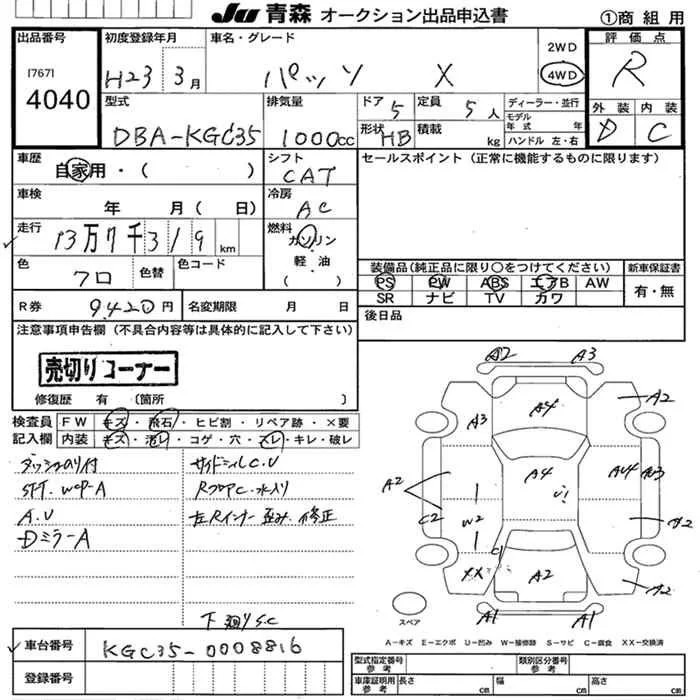 JU 青森 オークション出品申込書 ①商組用
出品番号
[767]
4040
初度登録年月
H23 3月
車名・グレード
パッソ X
2WD
4WD
評価点
R
外装 内装
D C
型式
DBA-KGC35
排気量
1000cc
ドア 5
定員 5人
形状 HB
積載 kg
ディーラー・並行
モデル年式 年式
ハンドル 左・右
車歴
自家用・( )
シフト
CAT
セールスポイント(正常に機能するものに限ります)
車検
年 月( 日)
冷房
AC
走行
13万7千319km
燃料
ガソリン
軽・油
( )
色
クロ
色替
色コード
装備品(純正品に限り〇をつけてください)
新車保証書
PS PW ABS エアB AW
SR ナビ TV カワ
有・無
R券 9.420円
名変期限 月 日
後日品
注意事項申告欄(不具合内容等は具体的に記入して下さい)
売切りコーナー
修復歴 有 〔箇所 〕
検査員記入欄
FW キズ・飛石・ヒビ割・リペア跡・×要
内装 キズ・汚レ・コゲ・穴・スレ・キレ・破レ
ダッシュのり付
サイドシルC.U
A.U
RフロアC・水入り
Dミラー A
左Rインナー歪み.修正
下廻りS.C
A2 A3
A3 A4 A2
A2 A4 AU4
C2 W2 C1 A2
XX A2
A1 A1
スペア
A-キズ E-エクボ U-凹み W-補修跡 S-サビ C-腐食 XX-交換済
車台番号
KGC35-0008816
登録番号
型式指定番号 参考
類別区分番号 参考
車庫証明用 参考
長さ cm 幅 cm 高さ cm